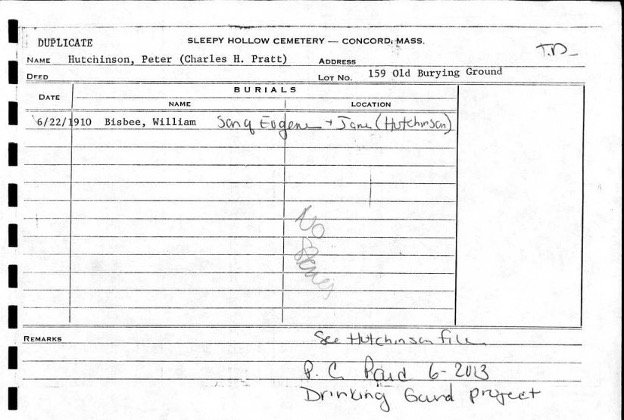 DUPLICATE
SLEEPY HOLLOW CEMETERY — CONCORD, MASS.
T.D-
NAME Hutchinson, Peter (Charles H. Pratt) ADDRESS
DEED LOT No. 159 Old Burying Ground
BURIALS
DATE NAME LOCATION
6/22/1910 Bisbee, William Son of Eugene + Jane (Hutchinson)
No Stones
REMARKS
See Hutchinson file
P.C. Paid 6-2013
Drinking Gourd project